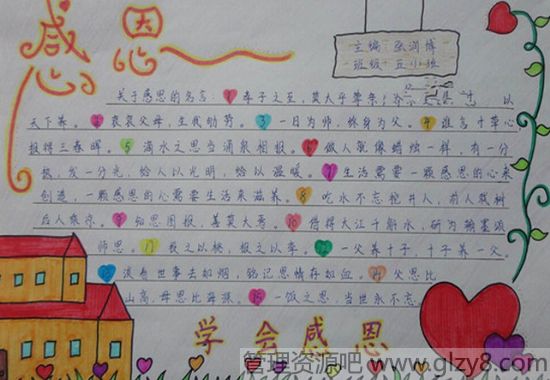 感恩
主编:张润博
班级:五小班
关于感恩的名言: 1 孝子之至,莫大乎尊亲; 以
天下养。 2 哀哀父母,生我劬劳。 3 一日为师,终身为父。 4 谁言寸草心,
报得三春晖。 5 滴水之恩当涌泉相报。 6 做人就像蜡烛一样,有一分
热,发一分光,给人以光明,给以温暖。 7 生活需要一颗感恩的心来
创造,一颗感恩的心需要生活来滋养。 8 吃水不忘挖井人,前人栽树
后人乘凉。 9 知恩图报,善莫大焉。 10 借得大江千斛水,研为翰墨颂
师恩。 11 投之以桃,报之以李。 一父养十子,十子养一父。
淡看世事去如烟,铭记恩情存如血。 父恩比
山高,母恩比海深。 一饭之恩,当世永不忘。
学会感恩
管理资源吧 www.glzy8.com